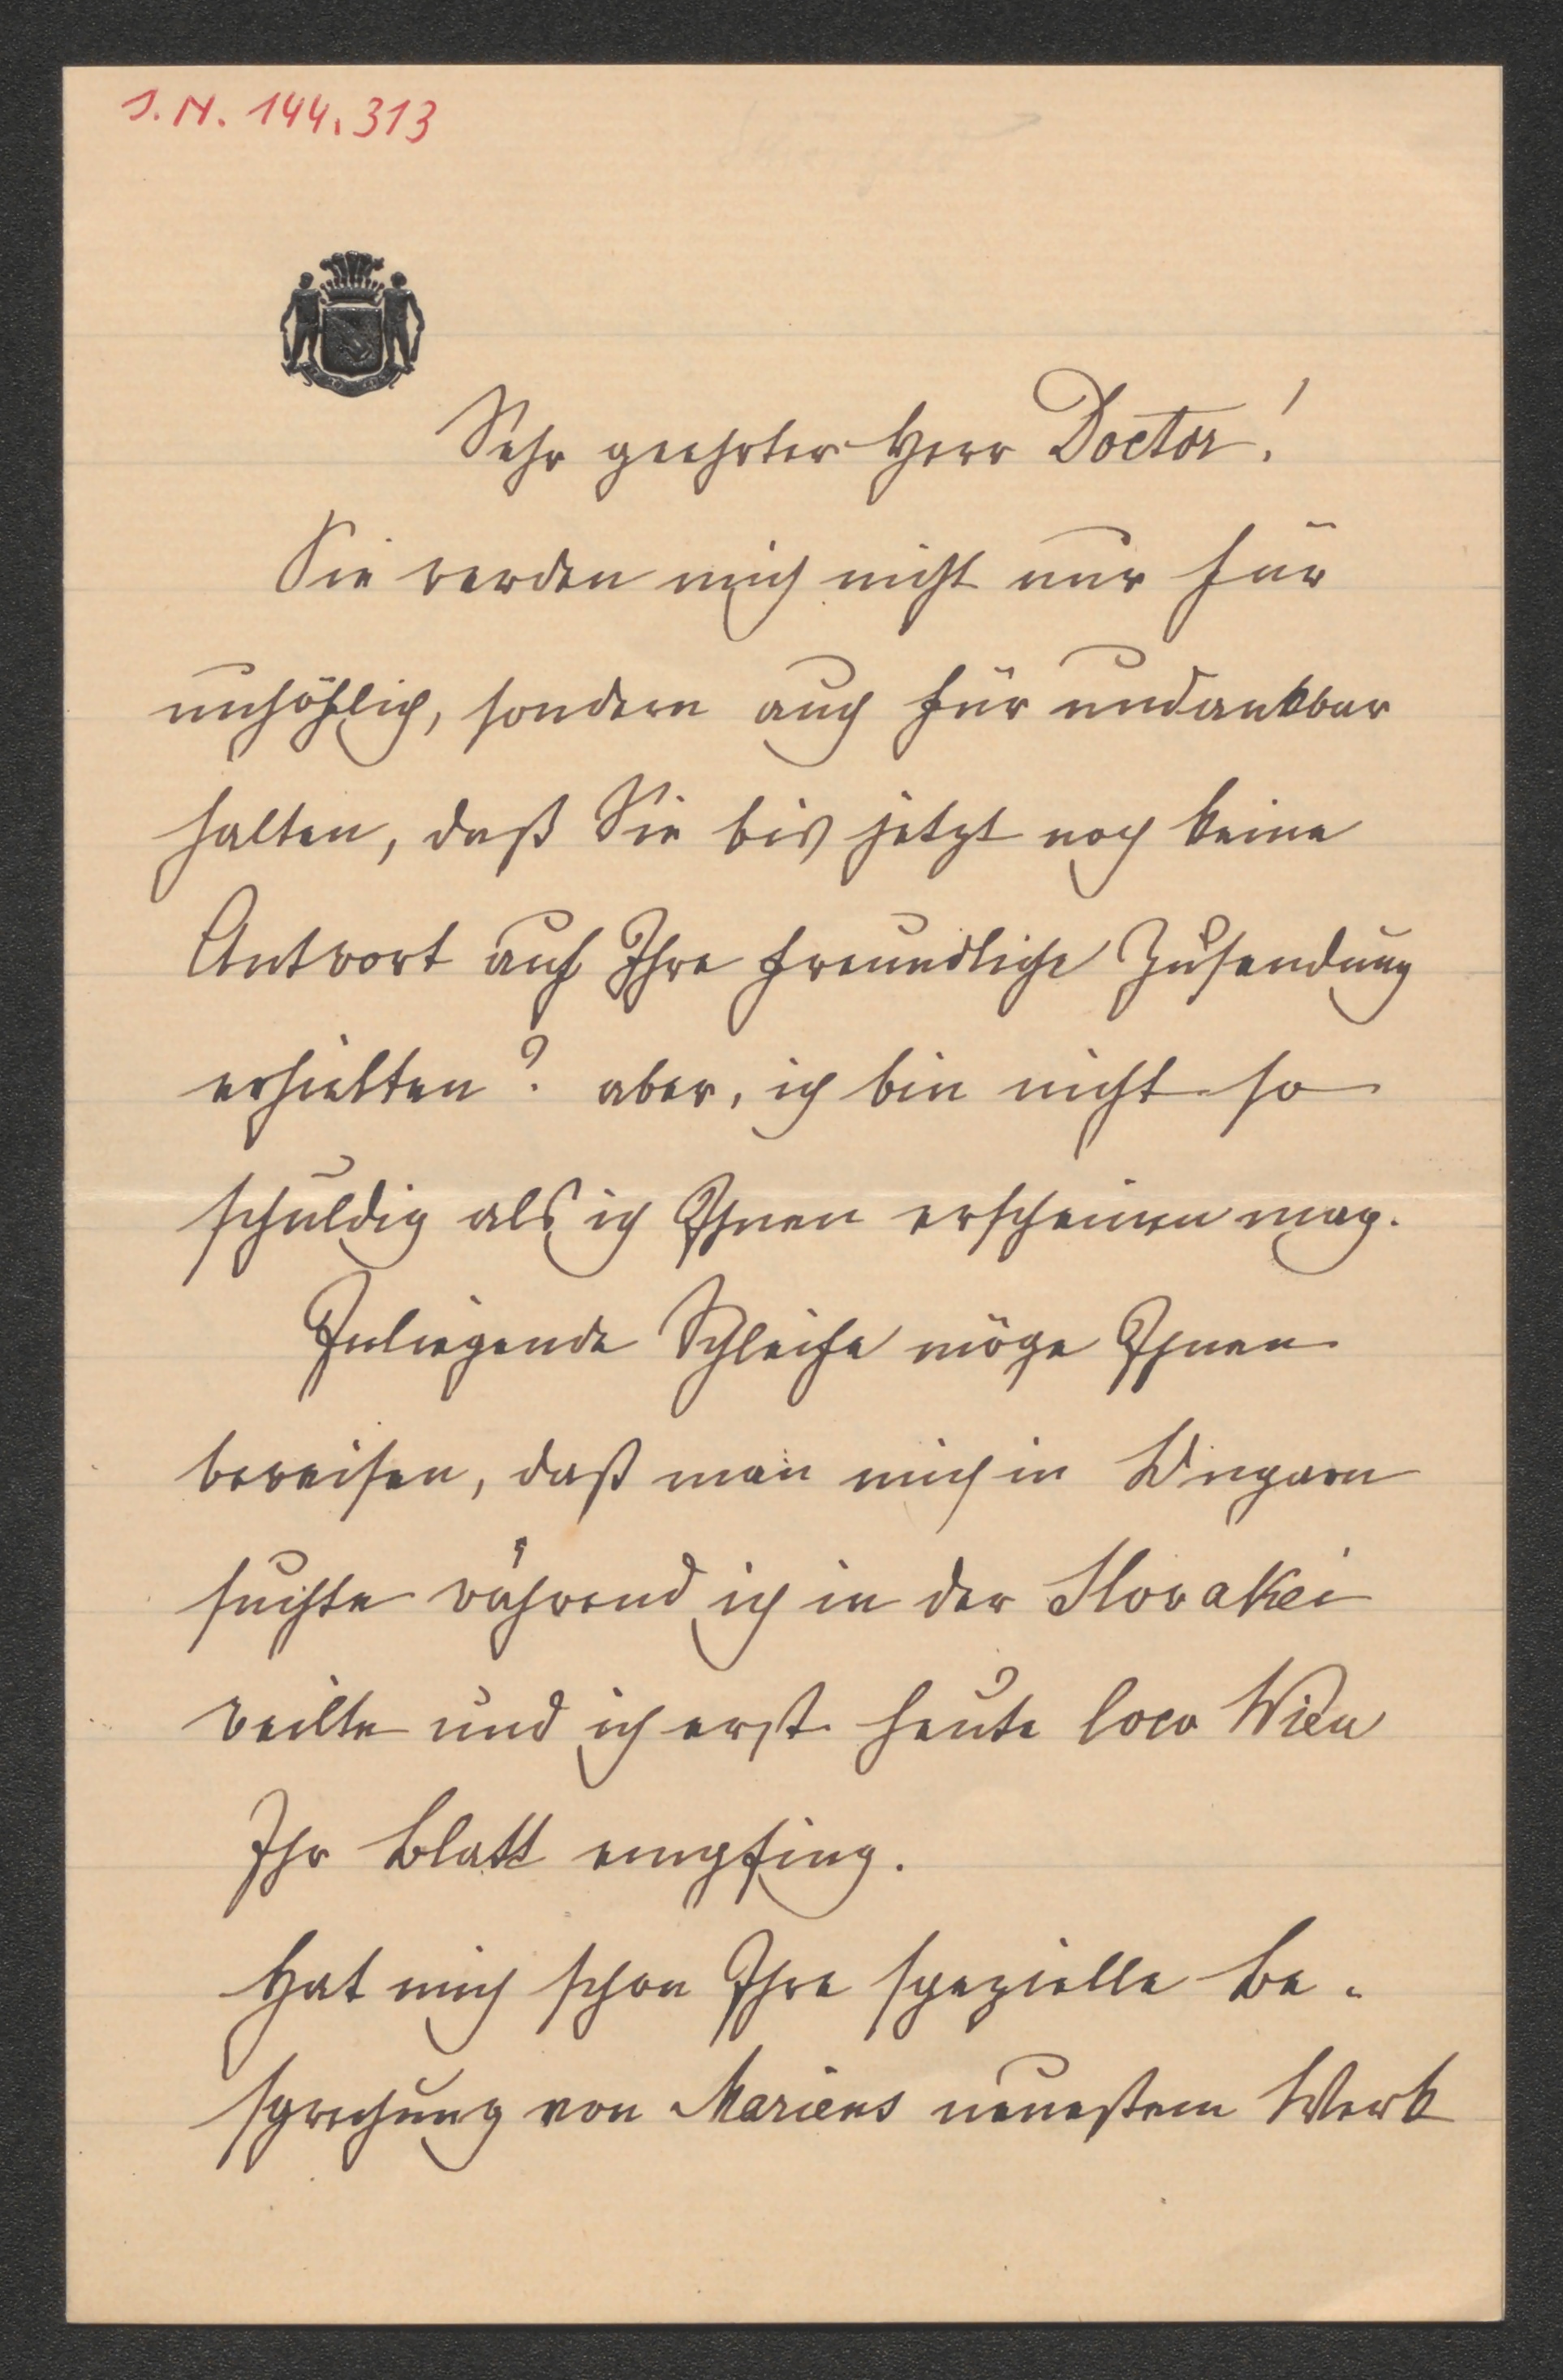 I. N. 144.313
Sehr geehrter Herr Doctor!
Sie werden mich nicht nur für
unhöflich, sondern auch für undankbar
halten, daß Sie bis jetzt noch keine
Antwort auf Ihre freundliche Zusendung
erhielten? aber, ich bin nicht so
schuldig als ich Ihnen erscheinen mag.
Inliegende Schleife möge Ihnen
beweisen, daß man mich in Ungarn
suchte während ich in der Slovakei
weilte und ich erst heute loco Wien
Ihr Blatt empfing.
Hat mich schon Ihre spezielle Be-
sprechung von Mariens neuestem Werk